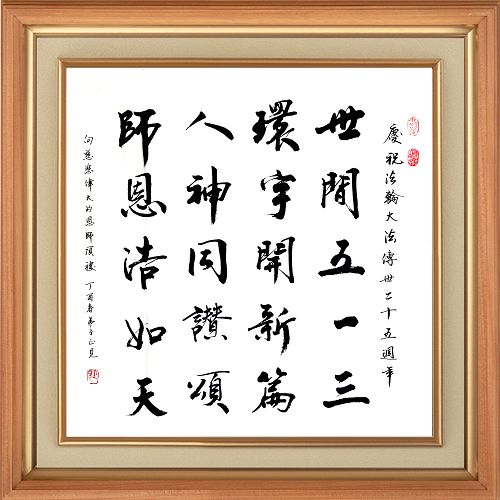 慶祝法輪大法傳世二十五週年
世間五一三
環宇開新篇
人神同讚頌
師恩浩如天
向慈悲偉大的恩師頂禮 丁酉春弟子正見